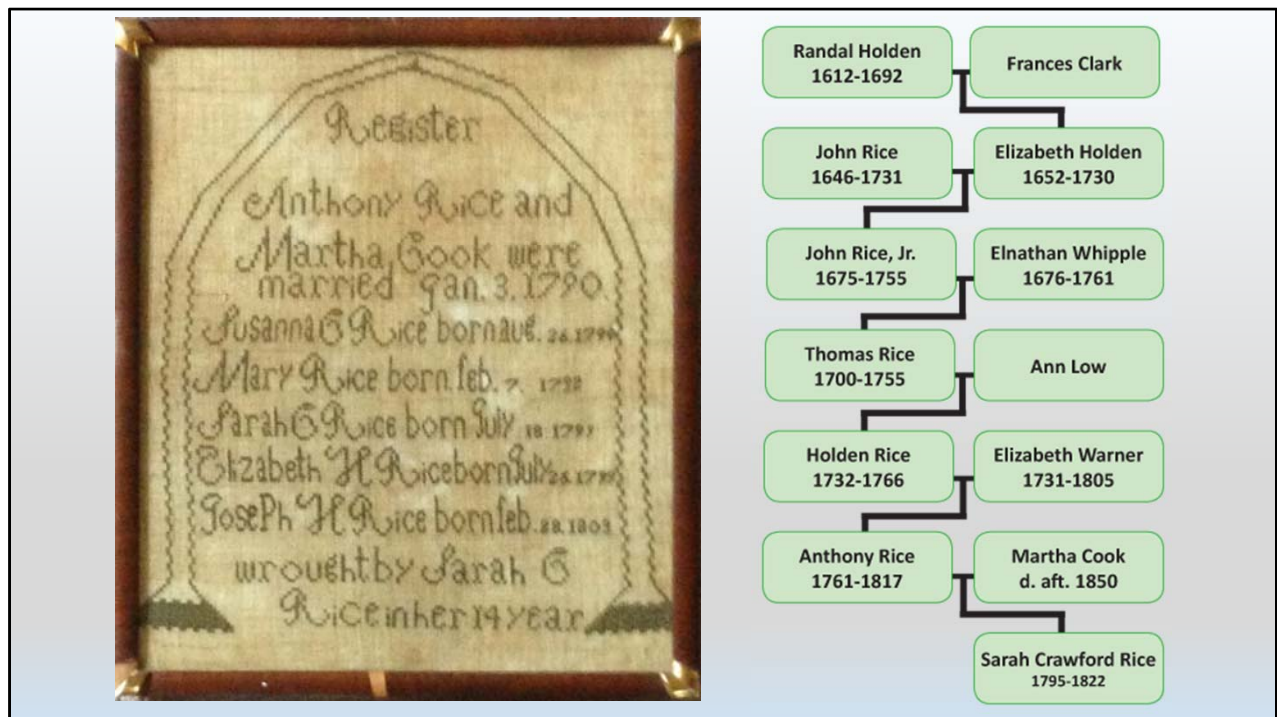 Register
Anthony Rice and
Martha Cook were
married Jan. 3. 1790.
Susanna C Rice born aug. 26.
Mary Rice born feb. 7.
Sarah C Rice born July 18.
Elizabeth H Rice born July 26.
Joseph H Rice born feb. 28. 1803
wrought by Sarah C
Rice in her 14 year
Randal Holden
1612-1692
Frances Clark
John Rice
1646-1731
Elizabeth Holden
1652-1730
John Rice, Jr.
1675-1755
Elnathan Whipple
1676-1761
Thomas Rice
1700-1755
Ann Low
Holden Rice
1732-1766
Elizabeth Warner
1731-1805
Anthony Rice
1761-1817
Martha Cook
d. aft. 1850
Sarah Crawford Rice
1795-1822